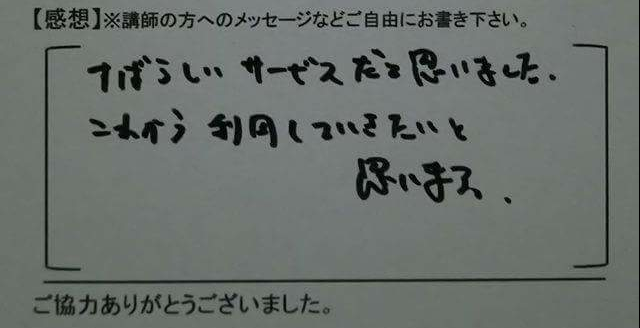 【感想】※講師の方へのメッセージなどご自由にお書き下さい。
すばらしい サービスだと思いました.
これから 利用していきたいと
思います.
ご協力ありがとうございました。